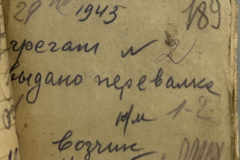 29 1945 189
грегат № 2
выдано перевалка
н/м 1-2
возчик